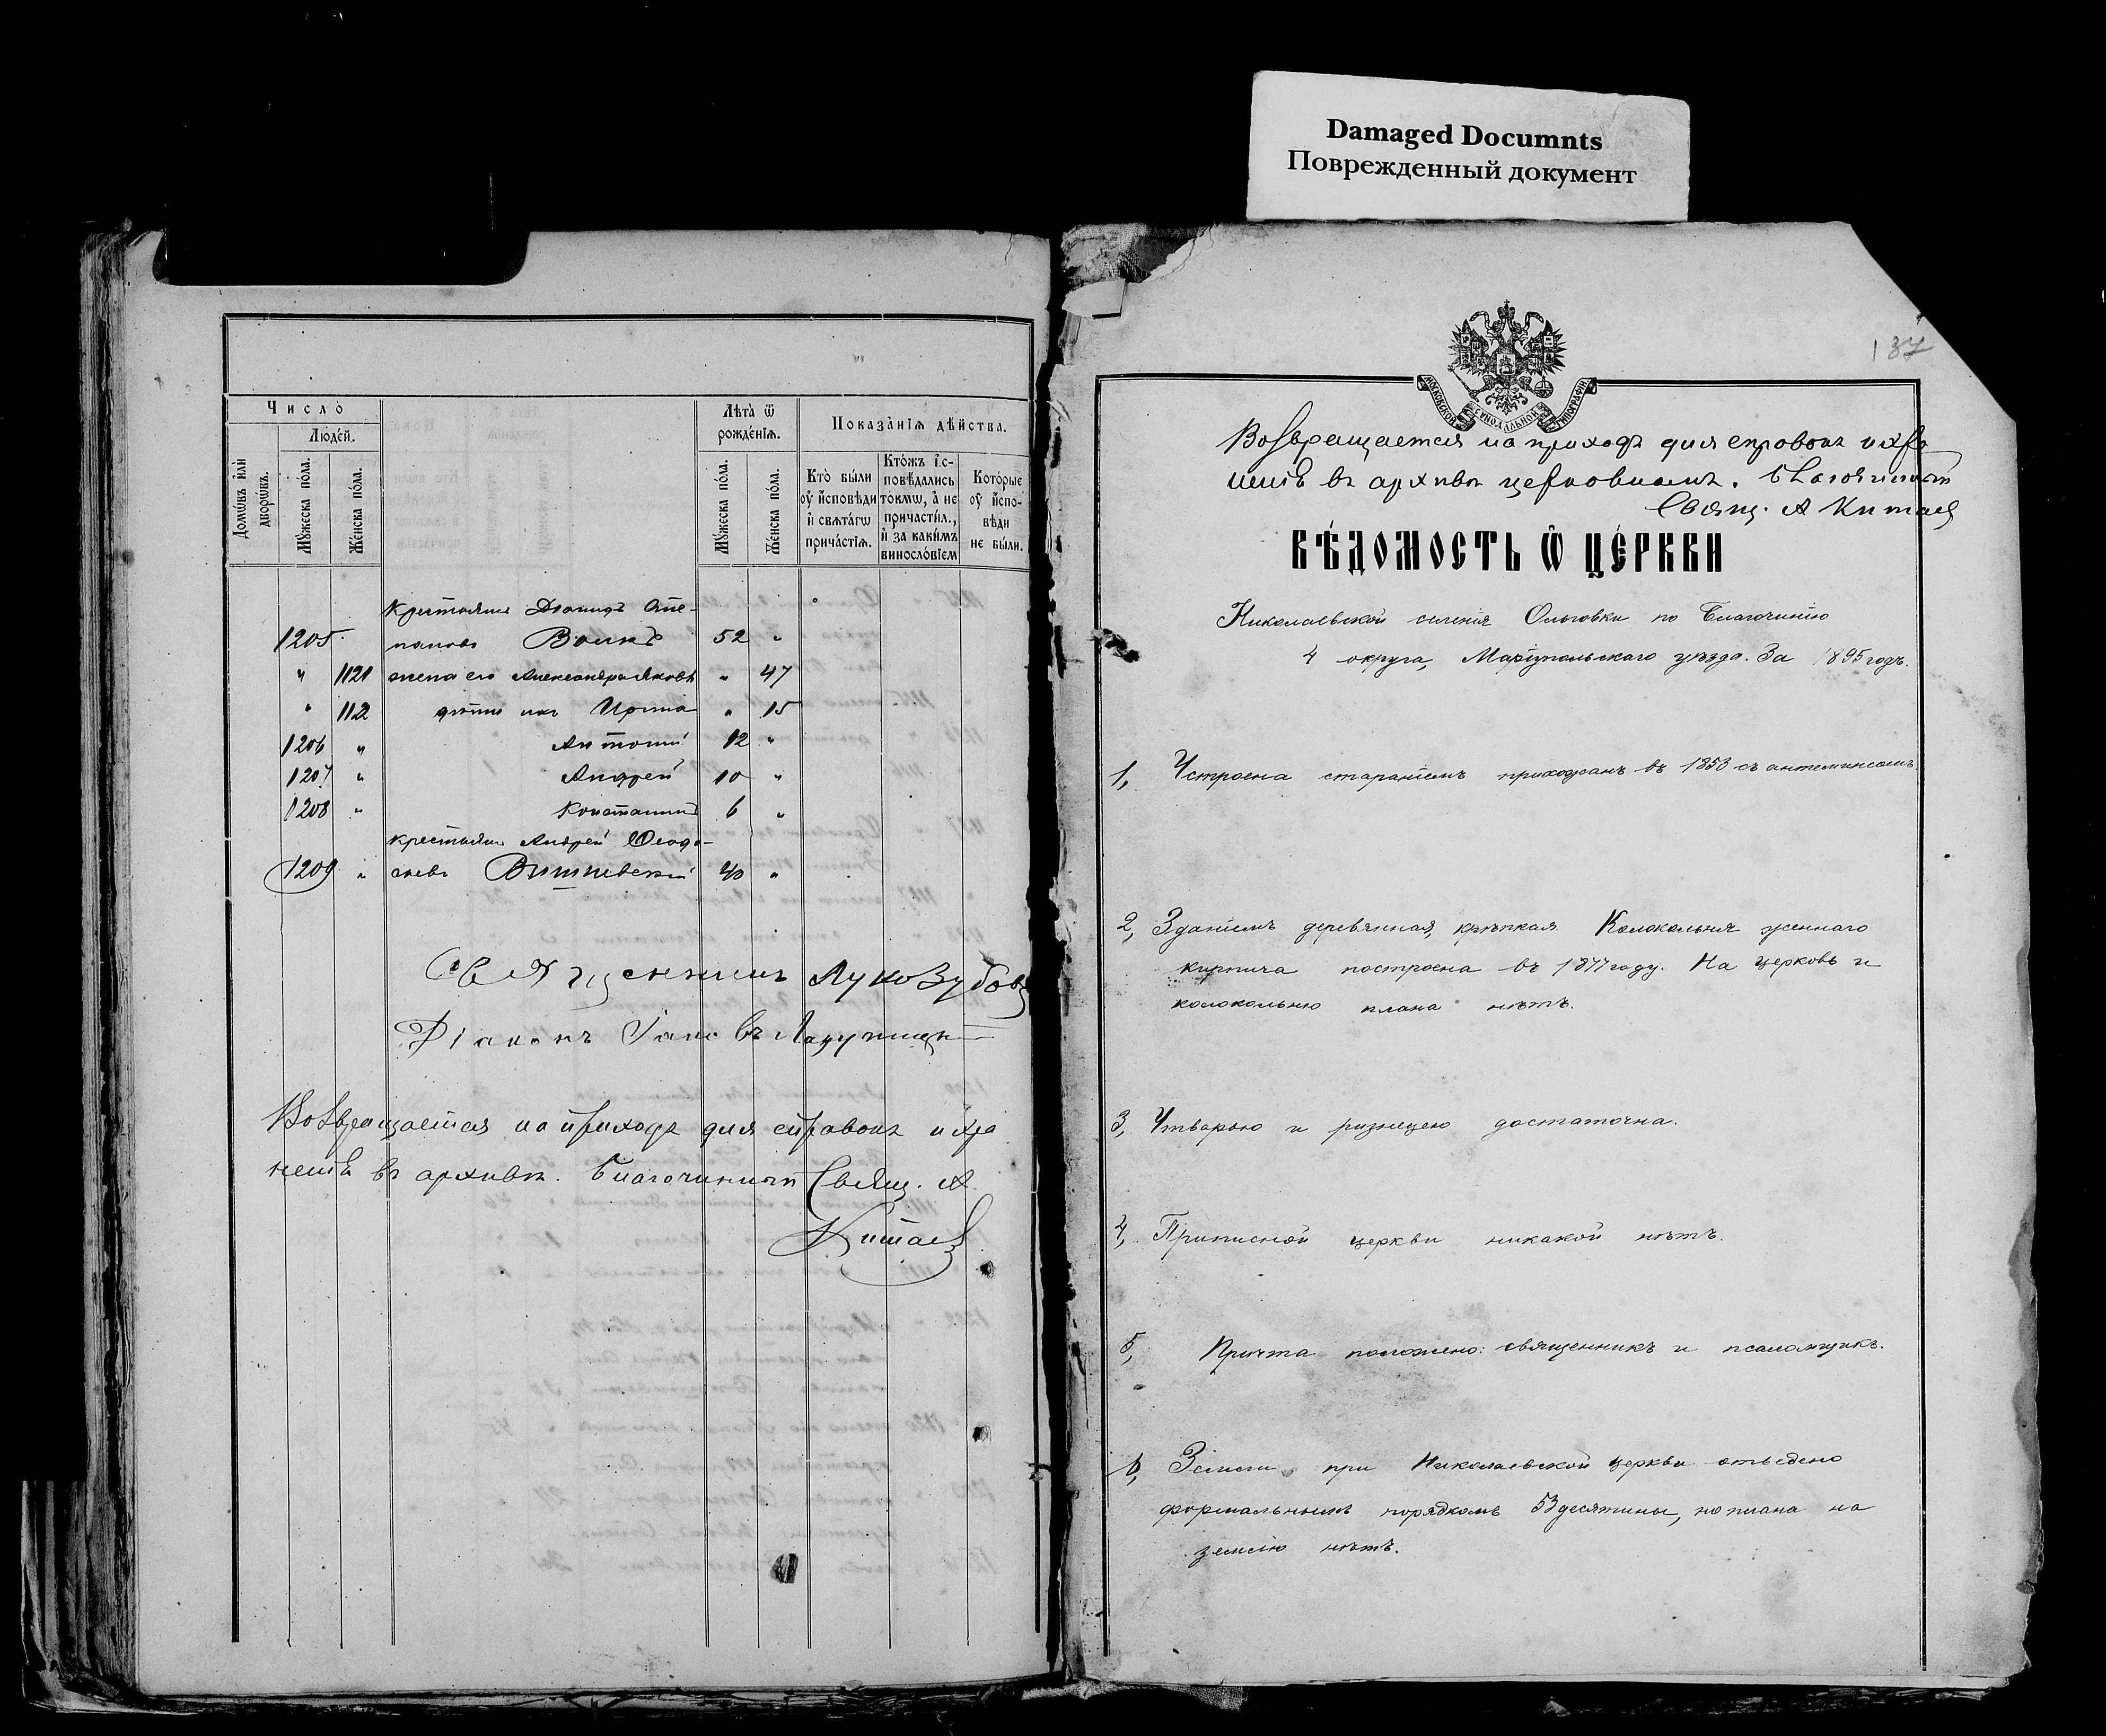 Damaged Documnts
Поврежденный документ
Число̀
Людéй.
Домѡ́въ и҆лѝ дворѡ́въ.
Мꙋ́жеска по́ла.
Же́нска по́ла.
Лѣта̀ ѿ рожде́нїѧ.
Мꙋ́жеска по́ла.
Же́нска по́ла.
Показа̑нїѧ дѣ́йства.
Кто̀ бы́ли оу҆ и҆́сповѣди и҆ свѧта́гѡ прича́стїѧ.
Кто́жъ и҆с-
повѣ́дались
то́кмѡ, а҆ не
причасти́л.,
и҆ за каки́мъ
винослóвїем
Кото́рые оу҆ и҆́спо-
вѣди
не бы́ли.
Крестьянинъ Діомидъ Сте-
1205. пановъ Воинъ 52 "
" 1121 жена его Александра Яковл " 47
" 112 дѣти ихъ Ирина " 15
1206 " Антоній 12 "
1207 " Андрей 10 "
1208 " Константинъ 6 "
крестьянин Андрей Ѳеодо-
1209 " сіевъ Вишневскій 40 "
Священникъ Лука Зубовъ
Діаконъ Іаковъ
Возвращается на приходъ для справокъ и хра
ненія въ архивѣ. Благочинный Свящ. А
Китаевъ
137
МОСКОВСКОЙ СѴНОДАЛЬНОЙ ТИПОГРАФІИ
Возвращается на приходъ для справокъ и хра
ненія въ архивѣ церковномъ. Благочинный
Свящ. А Китаев
ВѢ́ДОМОСТЬ Ѿ ЦЕ́РКВИ
Николаевской селенія Ольговки по Благочинію
4 округа, Маріупольскаго уѣзда. За 1895 годъ.
1, Устроена стараніемъ прихожанъ въ 1853 съ антиминсомъ.
2, Зданіемъ деревянная, крѣпкая. Колокольня жженнаго
кирпича построена въ 1877 году. На церковь и
колокольню плана нѣтъ.
3, Утварью и ризницею достаточна.
4, Приписной церкви никакой нѣтъ.
5, Причта положено: священникъ и псаломщикъ.
6, Земли при Николаевской церкви отведено
формальнымъ порядкомъ 53 десятины, но плана на
землю нѣтъ.